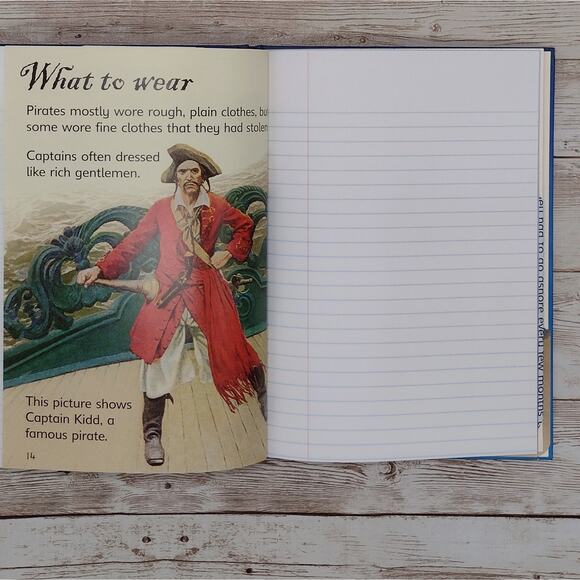 What to wear
Pirates mostly wore rough, plain clothes, bu
some wore fine clothes that they had stolen
Captains often dressed
like rich gentlemen.
This picture shows
Captain Kidd, a
famous pirate.
14
ey had to go ashore every few months